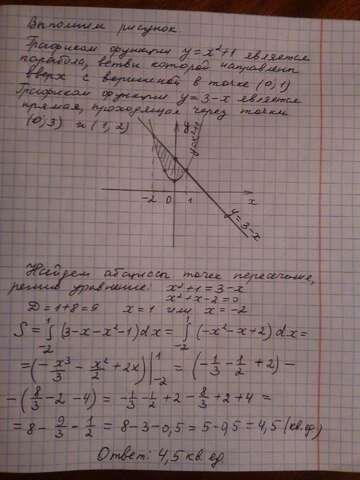 Выполним рисунок
Графиком функции y = x²+1 является
парабола, ветвы которой направлен
вверх с вершиной в точке (0,1)
Графиком функции y = 3-x является
прямая, проходящая через точки
(0,3) и (1,2)
y=x²+1
-2 0 1 x
y=3-x
Найдем абсциссы точек пересечения,
решив уравнение: x²+1=3-x
x²+x-2=0
D=1+8=9 x=1 или x=-2
S=∫₋₂¹(3-x-x²-1)dx=∫₋₂¹(-x²-x+2)dx=
=(-x³/3-x²/2+2x)|₋₂¹=(-1/3-1/2+2)-
-(8/3-2-4)=-1/3-1/2+2-8/3+2+4=
=8-9/3-1/2=8-3-0,5=5-0,5=4,5(кв.ед)
Ответ: 4,5 кв.ед.